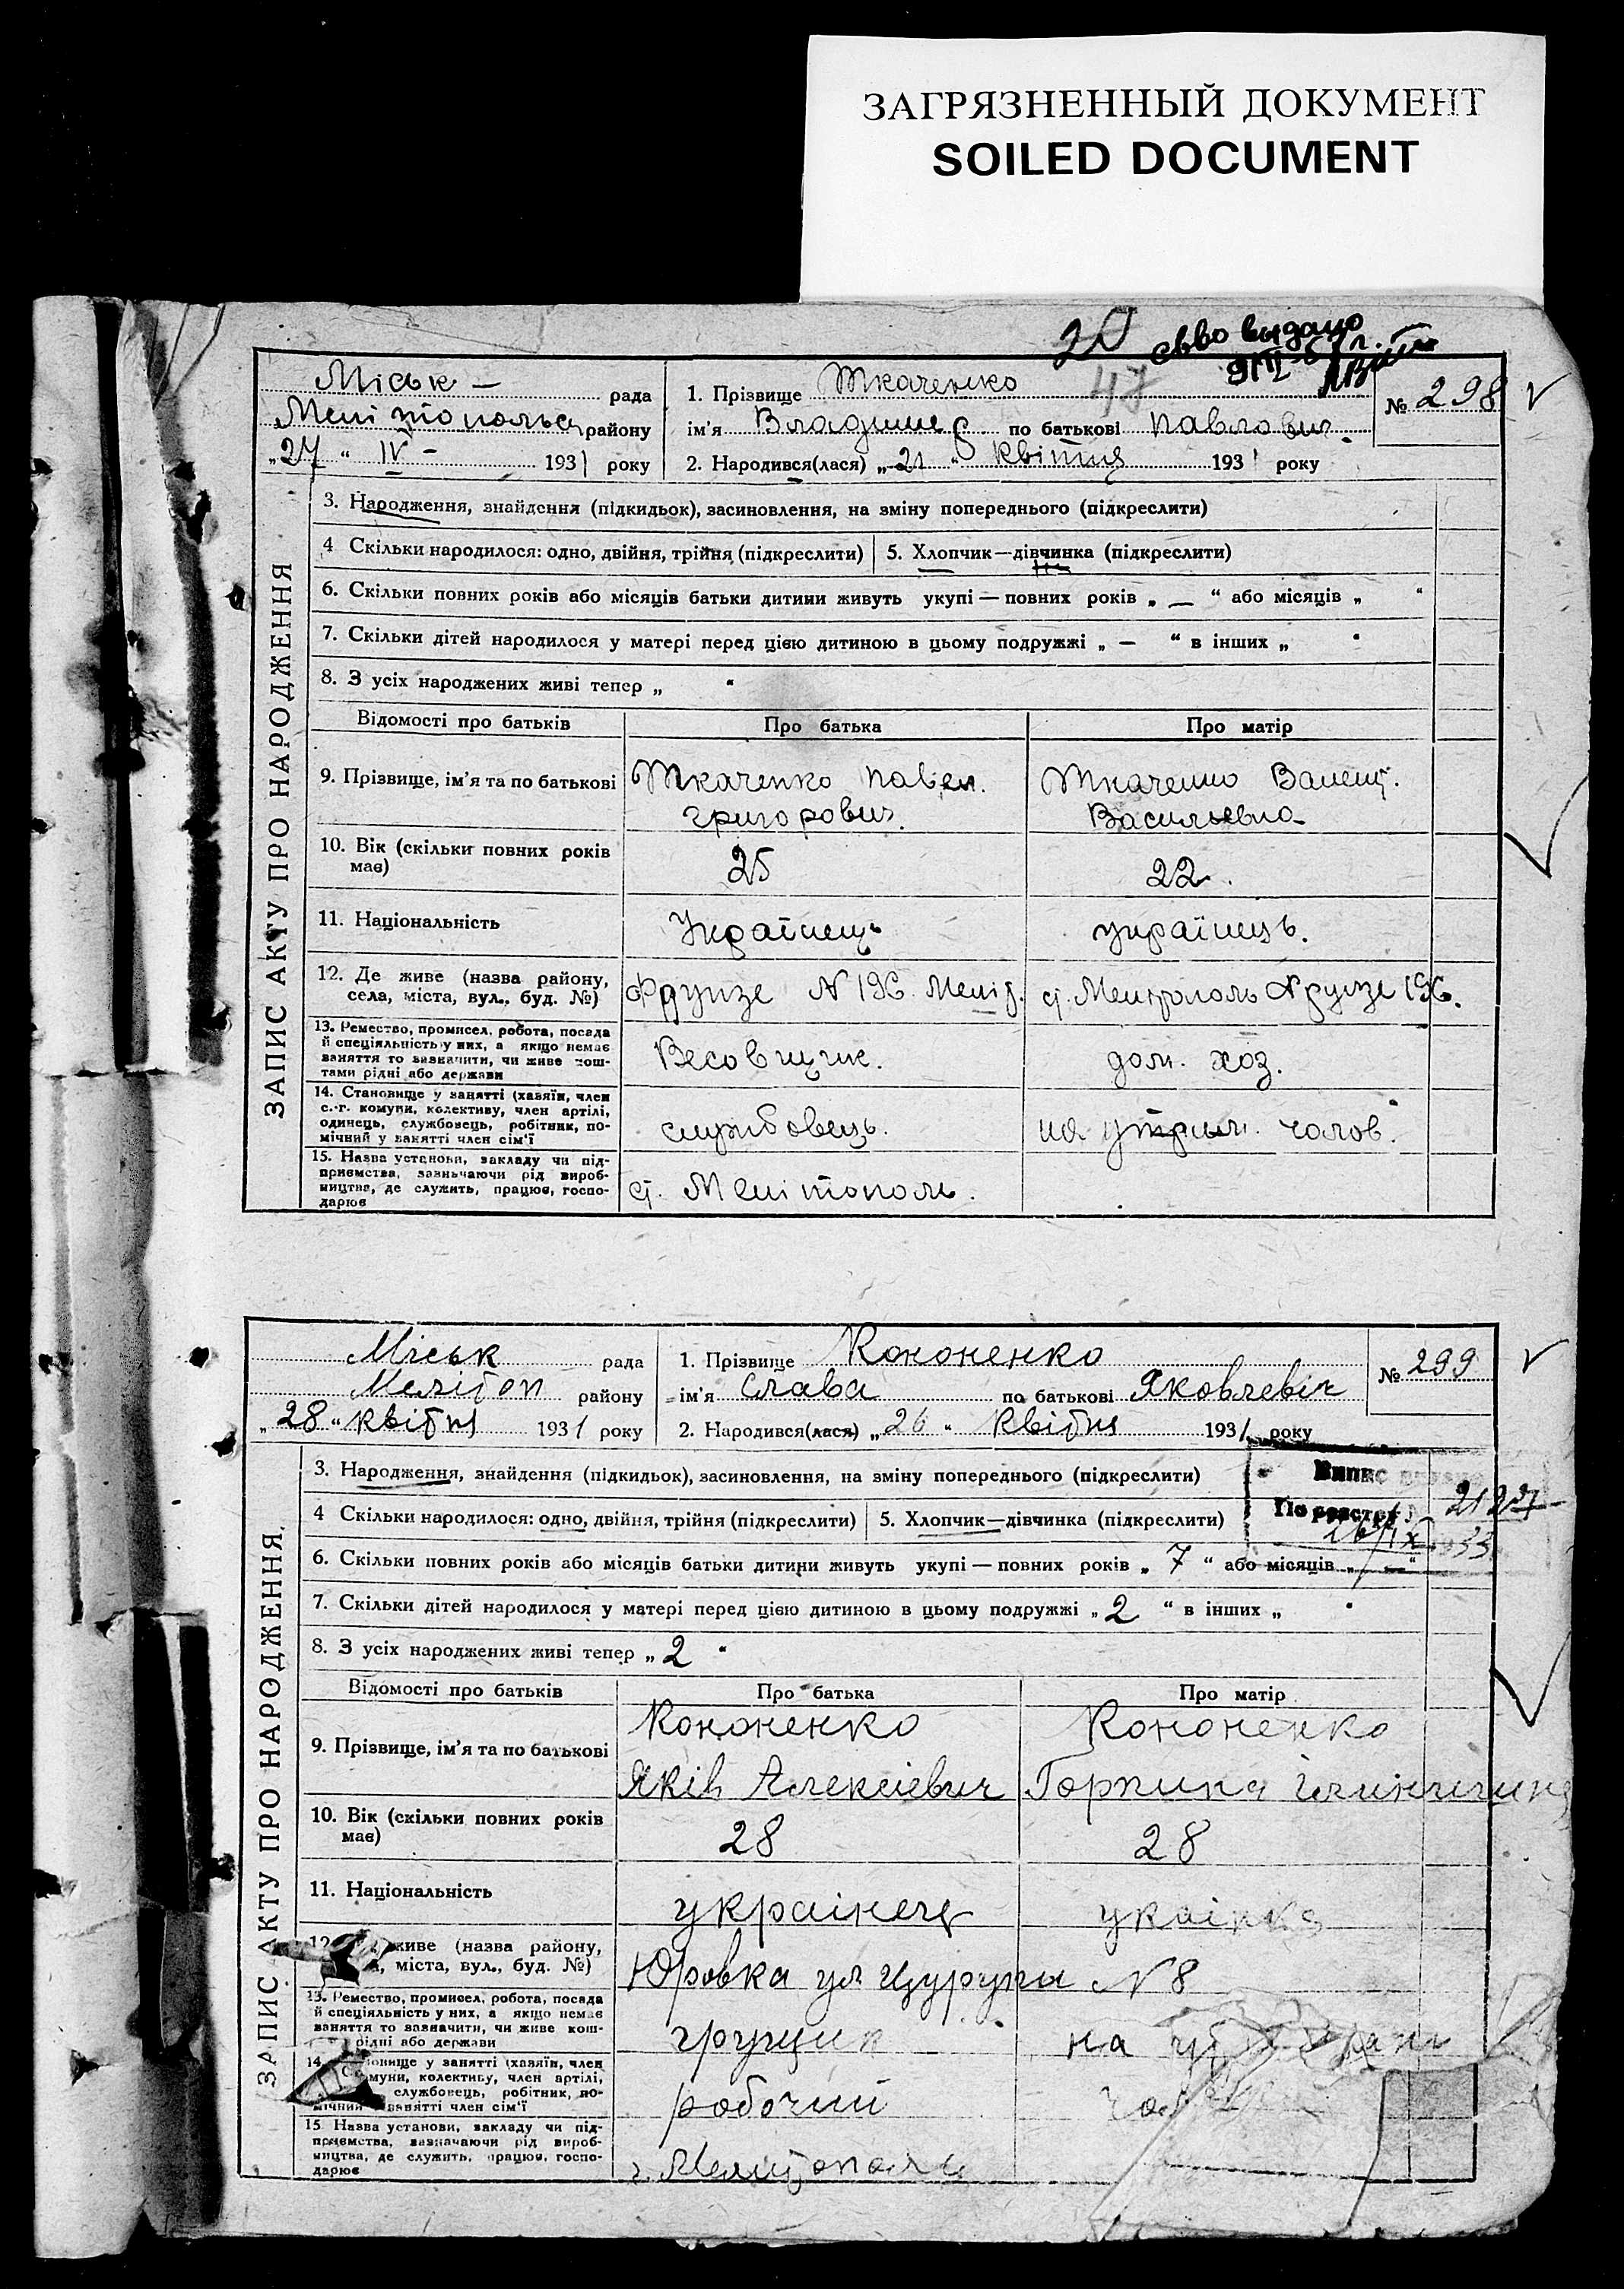 ЗАГРЯЗНЕННЫЙ ДОКУМЕНТ
SOILED DOCUMENT
20 свво выдано
47
ЗАПИС АКТУ ПРО НАРОДЖЕННЯ
Міськ — рада
Мелітопольськ району
„27“ IV — 1931 року
1. Прізвище Ткаченко
ім'я по батькові Павлович
2. Народився(лася) „21“ Квітня 1931 року
№ 298
3. Народження, знайдення (підкидьок), засиновлення, на зміну попереднього (підкреслити)
4 Скільки народилося: одно, двійня, трійня (підкреслити) 5. Хлопчик—дівчинка (підкреслити)
6. Скільки повних років або місяців батьки дитини живуть укупі — повних років „ — “ або місяців „ “
7. Скільки дітей народилося у матері перед цією дитиною в цьому подружжі „ — “ в інших „ “
8. З усіх народжених живі тепер „ “
Відомості про батьків Про батька Про матір
9. Прізвище, ім'я та по батькові Ткаченко Павел. Григорович. Ткаченко Васильевна
10. Вік (скільки повних років має) 25 22.
11. Національність Українець українець.
12. Де живе (назва району, села, міста, вул., буд. №) Фрунзе N 196 Меліт. ст. Мелітополь Фрунзе 196.
13. Ремество, промисел, робота, посада й спеціяльність у них, а якщо немає заняття то зазначити, чи живе коштами рідні або держави Весовщик. дом. хоз.
14. Становище у занятті (хазяїн, член с.-г. комуни, колективу, член артілі, одинець, службовець, робітник, помічний у занятті член сім'ї службовець. на утрим. чолов.
15. Назва установи, закладу чи підприємства, зазначаючи рід виробництва, де служить, працює, господарює ст. Мелітополь.
ЗАПИС АКТУ ПРО НАРОДЖЕННЯ
Міськ рада
Мелітоп району
„28“ квітня 1931 року
1. Прізвище Кононенко
ім'я Слава по батькові Яковлевіч
2. Народився(лася) „26“ Квітня 1931 року
№ 299
3. Народження, знайдення (підкидьок), засиновлення, на зміну попереднього (підкреслити)
Випис
По реєстру № 2127
26/IX 1933
4 Скільки народилося: одно, двійня, трійня (підкреслити) 5. Хлопчик—дівчинка (підкреслити)
6. Скільки повних років або місяців батьки дитини живуть укупі — повних років „ 7 “ або місяців „ — “
7. Скільки дітей народилося у матері перед цією дитиною в цьому подружжі „ 2 “ в інших „ “
8. З усіх народжених живі тепер „ 2 “
Відомості про батьків Про батька Про матір
9. Прізвище, ім'я та по батькові Кононенко Яків Алексієвич Кононенко Горпина
10. Вік (скільки повних років має) 28 28
11. Національність украінець укаінка
12. живе (назва району, міста, вул., буд. №) Юровка ул Цурупы N 8
13. Ремество, промисел, робота, посада й спеціяльність у них, а якщо немає заняття то зазначити, чи живе коштами рідні або держави грущик на
14. Становище у занятті (хазяїн, член комуни, колективу, член артілі, службовець, робітник, помічний у занятті член сім'ї робочий
15. Назва установи, закладу чи підприємства, зазначаючи рід виробництва, де служить, працює, господарює